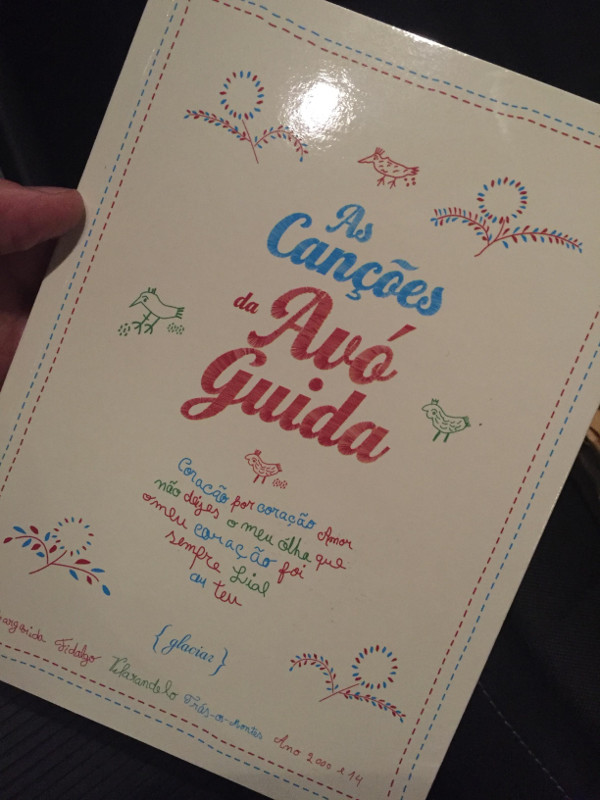 As
Canções
da Avó
Guida
Coração por coração Amor
não deijes o meu ólha que
o meu coração foi
sempre Lial
au teu
{glaciar}
Margarida Fidalgo Vilarandelo Trás-os-Montes Ano 2000 e 14